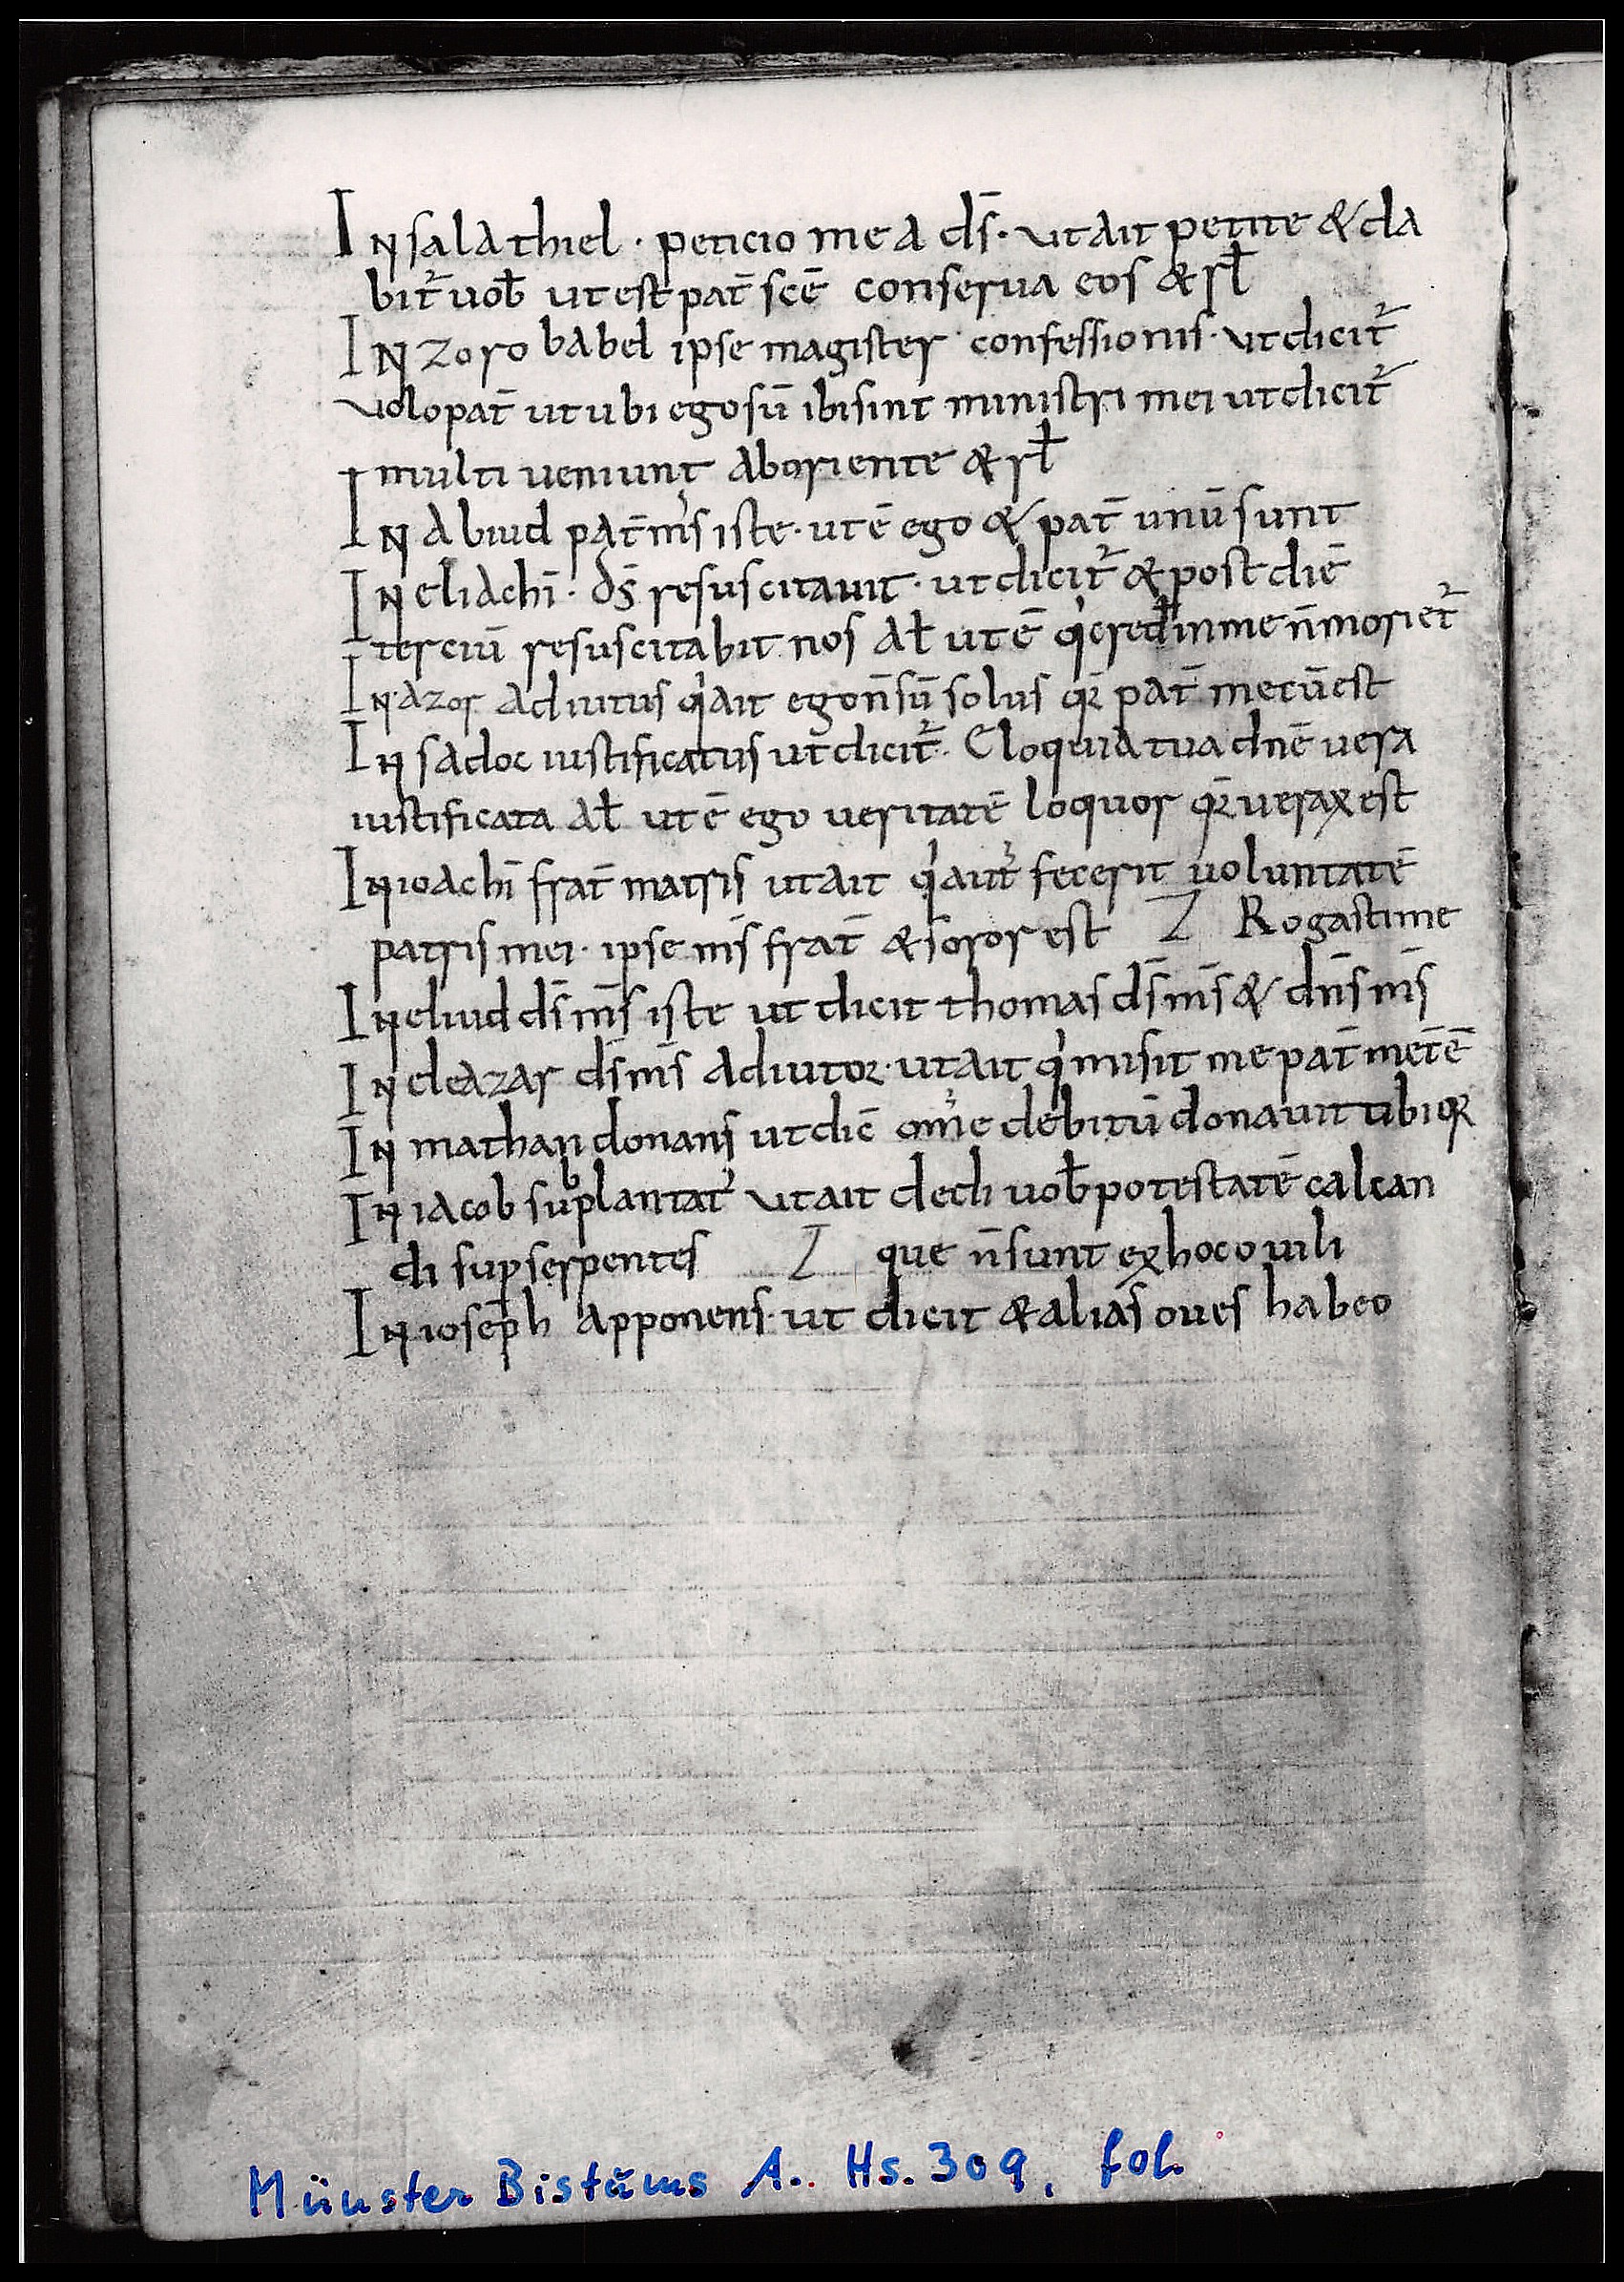 In salathiel · peticio mea ds̄ · ut ait petite & da
bit᷒ uob̄ ut est pat̄ scē conserua eos & rł
In zorobabel ipse magister confessionis · ut dicit᷒
uolo pat̄ ut ubi ego sū ibi sint ministri mei ut dicit᷒
multi ueniunt ab oriente & rł
In abiud pat̄ m̄s iste · ut ē ego & pat̄ unū sunt
In eliachī · ds̄ resuscitauit · ut dicit᷒ & post diē
terciū resuscitabit nos Al̄ ut ē qͥ cred̄ in me n̄ moriet᷒
In azor adiutus qͥ ait ego n̄ sū solus qr̄ pat̄ mecū est
In sadoc iustificatus ut dicit᷒ · Eloquia tua dn̄e uera
iustificata Al̄ ut ē ego ueritatē loquor qr̄ uerax est
In ioachī frat̄ matris ut ait qͥ aut᷒ fecerit uoluntatē
patris mei · ipse m̄s frat̄ & soror est Z Rogasti me
In eliud ds̄ m̄s iste ut dicit thomas ds̄ m̄s & dn̄s m̄s
In eleazar ds̄ m̄s adiutor · ut ait qͥ misit me pat̄ mec̄ ē
In mathan donans ut dic̄ om᷒e debitū donauit tibi qr
In iacob supblantat᷒ ut ait dedi uob̄ potestatē calcan
di sup serpentes Z que n̄ sunt ex hoc ouili
In ioseph apponens · ut dicit & alias oues habeo
Münster Bistums A. Hs. 309, fol.